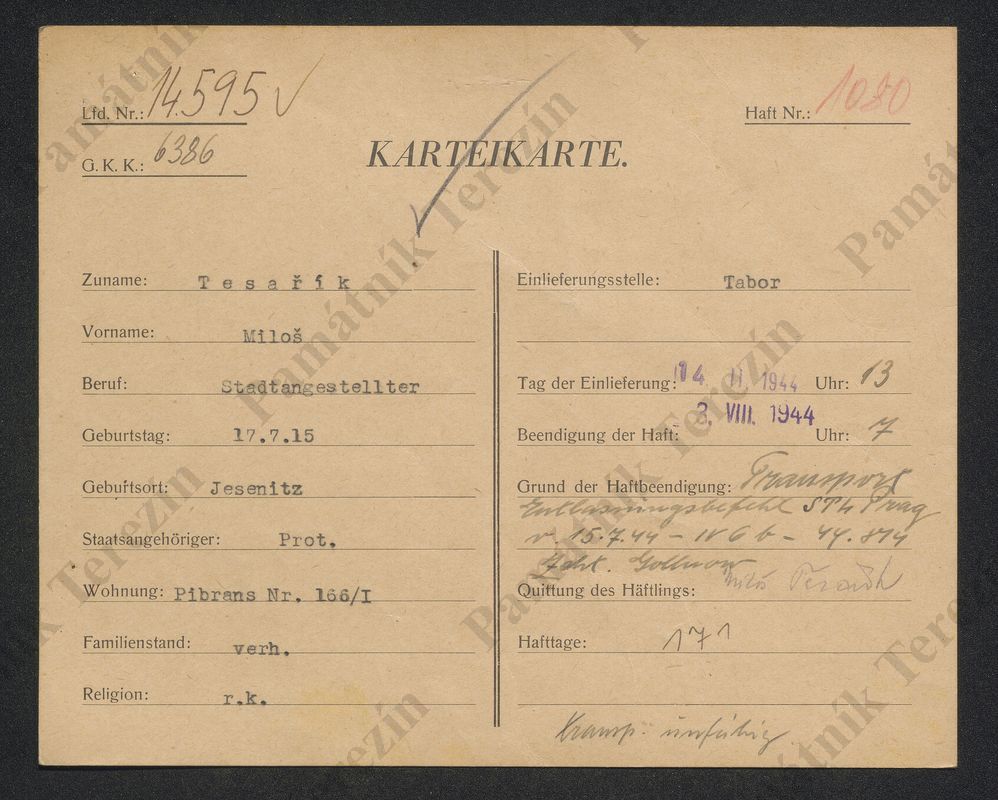 Lfd. Nr.: 14.595
Haft Nr.: 1080
G. K. K.: 6386
KARTEIKARTE.
Zuname: Tesařík
Vorname: Miloš
Beruf: Stadtangestellter
Geburtstag: 17.7.15
Geburtsort: Jesenitz
Staatsangehöriger: Prot.
Wohnung: Pibrans Nr. 166/I
Familienstand: verh.
Religion: r.k.
Einlieferungsstelle: Tabor
Tag der Einlieferung: 14. II. 1944 Uhr: 13
Beendigung der Haft: 3. VIII. 1944 Uhr: 7
Grund der Haftbeendigung: Transport
Entlassungsbefehl STL Prag
v. 15.7.44 – IV 6 b – 44.814
Gollnow
Quittung des Häftlings: Miloš
Hafttage: 171
Transp. unfähig
Památník Terezín